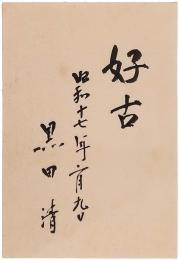 好古
昭和十七年二月九日
黒田清